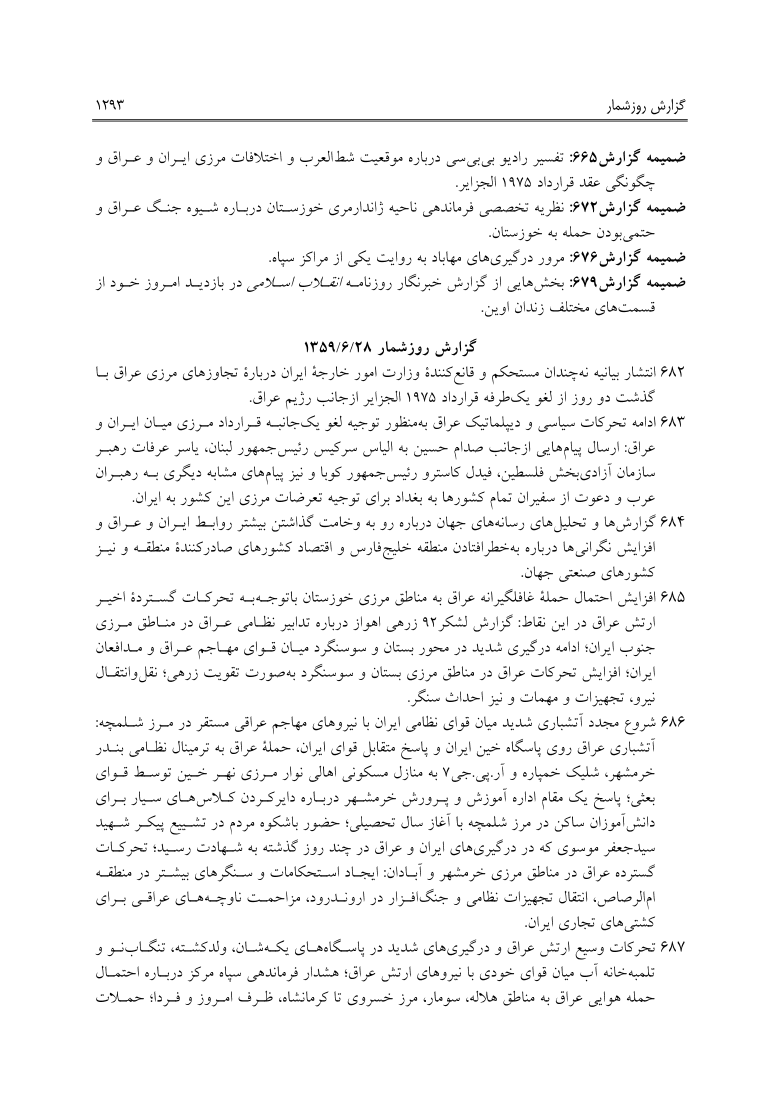 گزارش روزشمار ۱۲۹۳
ضمیمه گزارش۶۶۵: تفسیر رادیو بی‌بی‌سی درباره موقعیت شط‌العرب و اختلافات مرزی ایـران و عـراق و
چگونگی عقد قرارداد ۱۹۷۵ الجزایر.
ضمیمه گزارش۶۷۲: نظریه تخصصی فرماندهی ناحیه ژاندارمری خوزسـتان دربـاره شـیوه جنـگ عـراق و
حتمی‌بودن حمله به خوزستان.
ضمیمه گزارش۶۷۶: مرور درگیری‌های مهاباد به روایت یکی از مراکز سپاه.
ضمیمه گزارش۶۷۹: بخش‌هایی از گزارش خبرنگار روزنامـه انقـلاب اسـلامی در بازدیـد امـروز خـود از
قسمت‌های مختلف زندان اوین.
گزارش روزشمار ۱۳۵۹/۶/۲۸
۶۸۲ انتشار بیانیه نه‌چندان مستحکم و قانع‌کنندۀ وزارت امور خارجۀ ایران دربارۀ تجاوزهای مرزی عراق بـا
گذشت دو روز از لغو یک‌طرفه قرارداد ۱۹۷۵ الجزایر ازجانب رژیم عراق.
۶۸۳ ادامه تحرکات سیاسی و دیپلماتیک عراق به‌منظور توجیه لغو یک‌جانبـه قـرارداد مـرزی میـان ایـران و
عراق: ارسال پیام‌هایی ازجانب صدام حسین به الیاس سرکیس رئیس‌جمهور لبنان، یاسر عرفات رهبـر
سازمان آزادی‌بخش فلسطین، فیدل کاسترو رئیس‌جمهور کوبا و نیز پیام‌های مشابه دیگری بـه رهبـران
عرب و دعوت از سفیران تمام کشورها به بغداد برای توجیه تعرضات مرزی این کشور به ایران.
۶۸۴ گزارش‌ها و تحلیل‌های رسانه‌های جهان درباره رو به وخامت گذاشتن بیشتر روابـط ایـران و عـراق و
افزایش نگرانی‌ها درباره به‌خطرافتادن منطقه خلیج‌فارس و اقتصاد کشورهای صادرکنندۀ منطقـه و نیـز
کشورهای صنعتی جهان.
۶۸۵ افزایش احتمال حملۀ غافلگیرانه عراق به مناطق مرزی خوزستان باتوجـه‌بـه تحرکـات گسـتردۀ اخیـر
ارتش عراق در این نقاط: گزارش لشکر۹۲ زرهی اهواز درباره تدابیر نظـامی عـراق در منـاطق مـرزی
جنوب ایران؛ ادامه درگیری شدید در محور بستان و سوسنگرد میـان قـوای مهـاجم عـراق و مـدافعان
ایران؛ افزایش تحرکات عراق در مناطق مرزی بستان و سوسنگرد به‌صورت تقویت زرهی؛ نقل‌وانتقـال
نیرو، تجهیزات و مهمات و نیز احداث سنگر.
۶۸۶ شروع مجدد آتشباری شدید میان قوای نظامی ایران با نیروهای مهاجم عراقی مستقر در مـرز شـلمچه:
آتشباری عراق روی پاسگاه خین ایران و پاسخ متقابل قوای ایران، حملۀ عراق به ترمینال نظـامی بنـدر
خرمشهر، شلیک خمپاره و آر.پی.جی۷ به منازل مسکونی اهالی نوار مـرزی نهـر خـین توسـط قـوای
بعثی؛ پاسخ یک مقام اداره آموزش و پـرورش خرمشـهر دربـاره دایرکـردن کـلاس‌هـای سـیار بـرای
دانش‌آموزان ساکن در مرز شلمچه با آغاز سال تحصیلی؛ حضور باشکوه مردم در تشـییع پیکـر شـهید
سیدجعفر موسوی که در درگیری‌های ایران و عراق در چند روز گذشته به شـهادت رسـید؛ تحرکـات
گسترده عراق در مناطق مرزی خرمشهر و آبـادان: ایجـاد اسـتحکامات و سـنگرهای بیشـتر در منطقـه
ام‌الرصاص، انتقال تجهیزات نظامی و جنگ‌افـزار در ارونـدرود، مزاحمـت ناوچـه‌هـای عراقـی بـرای
کشتی‌های تجاری ایران.
۶۸۷ تحرکات وسیع ارتش عراق و درگیری‌های شدید در پاسـگاه‌هـای یکـه‌شـان، ولدکشـته، تنگـاب‌نـو و
تلمبه‌خانه آب میان قوای خودی با نیروهای ارتش عراق؛ هشدار فرماندهی سپاه مرکز دربـاره احتمـال
حمله هوایی عراق به مناطق هلاله، سومار، مرز خسروی تا کرمانشاه، ظـرف امـروز و فـردا؛ حمـلات